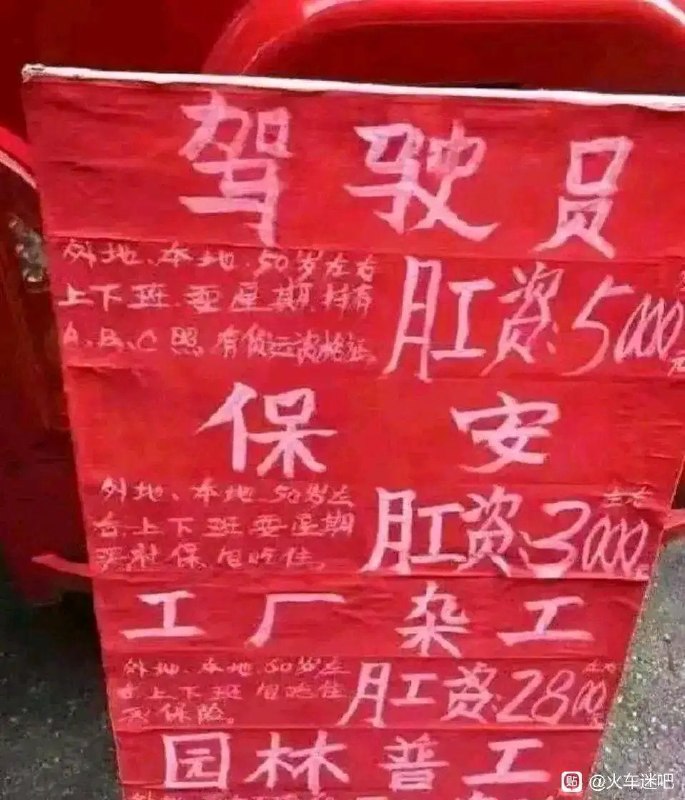 驾驶员
外地、本地、50岁左右
上下班、要星期、持有
A、B、C照、有货运资格证。
月工资:5000元
保安
外地、本地50岁左
右上下班要星期
买社保包吃住。
月工资:3000元
左右
工厂杂工
外地、本地、50岁左
右上下班包吃住
买保险。
月工资:2800元
左右
园林普工
贴 @火车迷吧